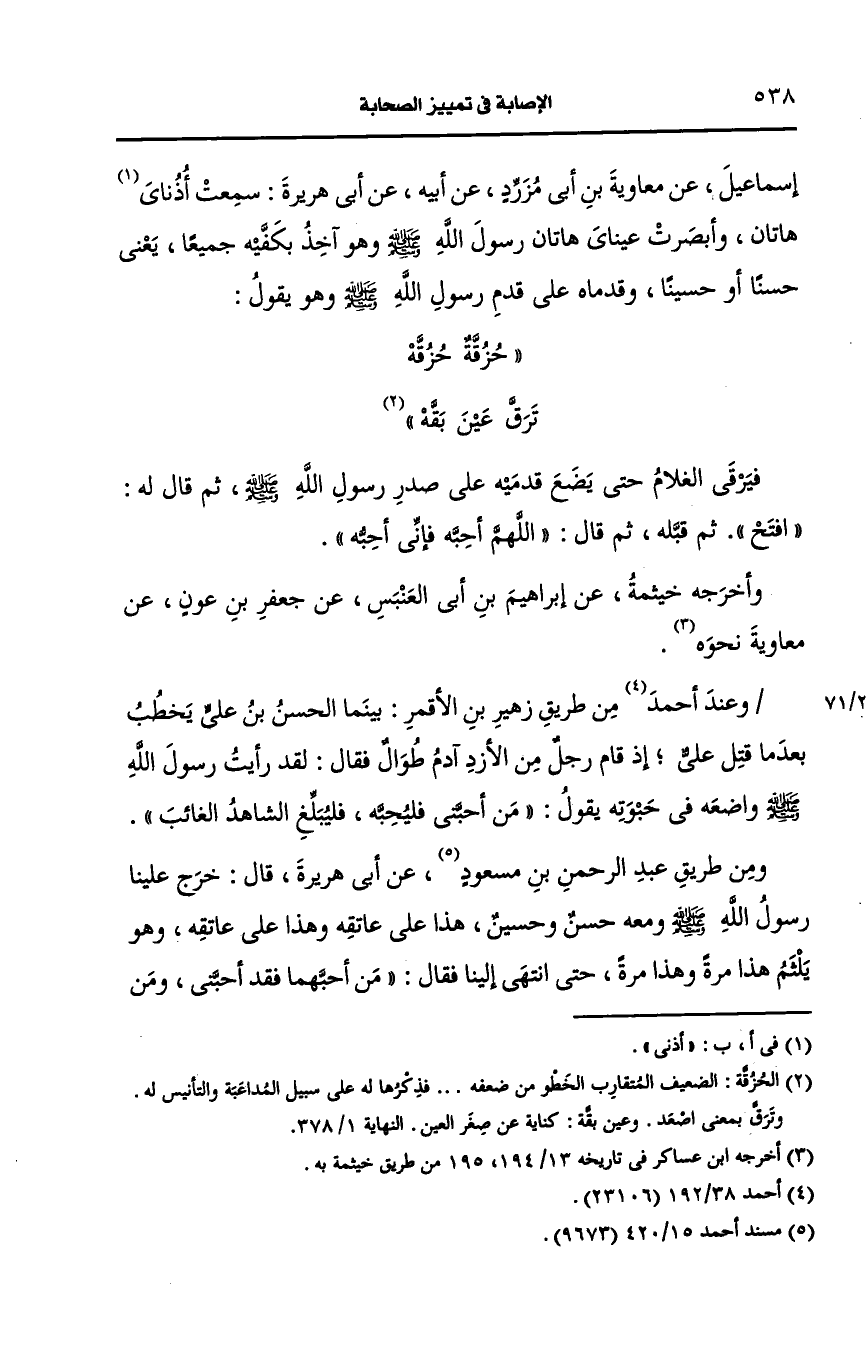 ٥٣٨
الإصابة فى تمييز الصحابة
إسماعيلَ ، عن معاويةَ بنِ أبى مُزَرِّدٍ ، عن أبيه ، عن أبى هريرةَ : سمِعتْ أُذُناىَ (١)
هاتان ، وأبصَرتْ عيناىَ هاتان رسولَ اللَّهِ ﷺ وهو آخِذٌ بكَفَّيْه جميعًا ، يَعْنى
حسنًا أو حسينًا ، وقدماه على قدمِ رسولِ اللَّهِ ﷺ وهو يقولُ :
« حُزُقَّةٌ حُزُقَّهْ
تَرَقَّ عَيْنَ بَقَّهْ » (٢)
فيَرْقَى الغلامُ حتى يَضَعَ قدمَيْه على صدرِ رسولِ اللَّهِ ﷺ ، ثم قال له :
« افتَحْ ». ثم قبَّله ، ثم قال : « اللَّهمَّ أحِبَّه فإنِّى أحِبُّه » .
وأخرَجه خيثمةُ ، عن إبراهيمَ بنِ أبى العَنْبَسِ ، عن جعفرِ بنِ عونٍ ، عن
معاويةَ نحوَه (٣) .
٧١/٢ / وعندَ أحمدَ (٤) مِن طريقِ زهيرِ بنِ الأقمرِ : بينَما الحسنُ بنُ علىٍّ يَخطُبُ
بعدَما قتِل علىٌّ ؛ إذ قام رجلٌ مِن الأزدِ آدمُ طُوَالٌ فقال : لقد رأيتُ رسولَ اللَّهِ
ﷺ واضعَه فى حَبْوَتِه يقولُ : « مَن أحبَّنى فليُحِبَّه ، فليُبَلِّغِ الشاهدُ الغائبَ » .
ومِن طريقِ عبدِ الرحمنِ بنِ مسعودٍ (٥) ، عن أبى هريرةَ ، قال : خرَج علينا
رسولُ اللَّهِ ﷺ ومعه حسنٌ وحسينٌ ، هذا على عاتقِه وهذا على عاتقِه ، وهو
يَلْثَمُ هذا مرةً وهذا مرةً ، حتى انتهَى إلينا فقال : « مَن أحبَّهما فقد أحبَّنى ، ومَن
(١) فى أ ، ب : « أذنى » .
(٢) الحُزُقَّة : الضعيف المُتقارِب الخَطْو من ضعفه ... فذِكْرُها له على سبيل المُداعَبَة والتأنيس له .
وتَرَقَّ بمعنى اصْعَد . وعين بقَّة : كناية عن صِغَر العين . النهاية ١/ ٣٧٨.
(٣) أخرجه ابن عساكر فى تاريخه ١٣/ ١٩٤، ١٩٥ من طريق خيثمة به .
(٤) أحمد ١٩٢/٣٨ (٢٣١٠٦) .
(٥) مسند أحمد ٤٢٠/١٥ (٩٦٧٣) .